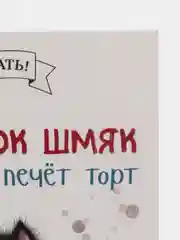 АТЬ!
ОК ШМЯК
печёт торт